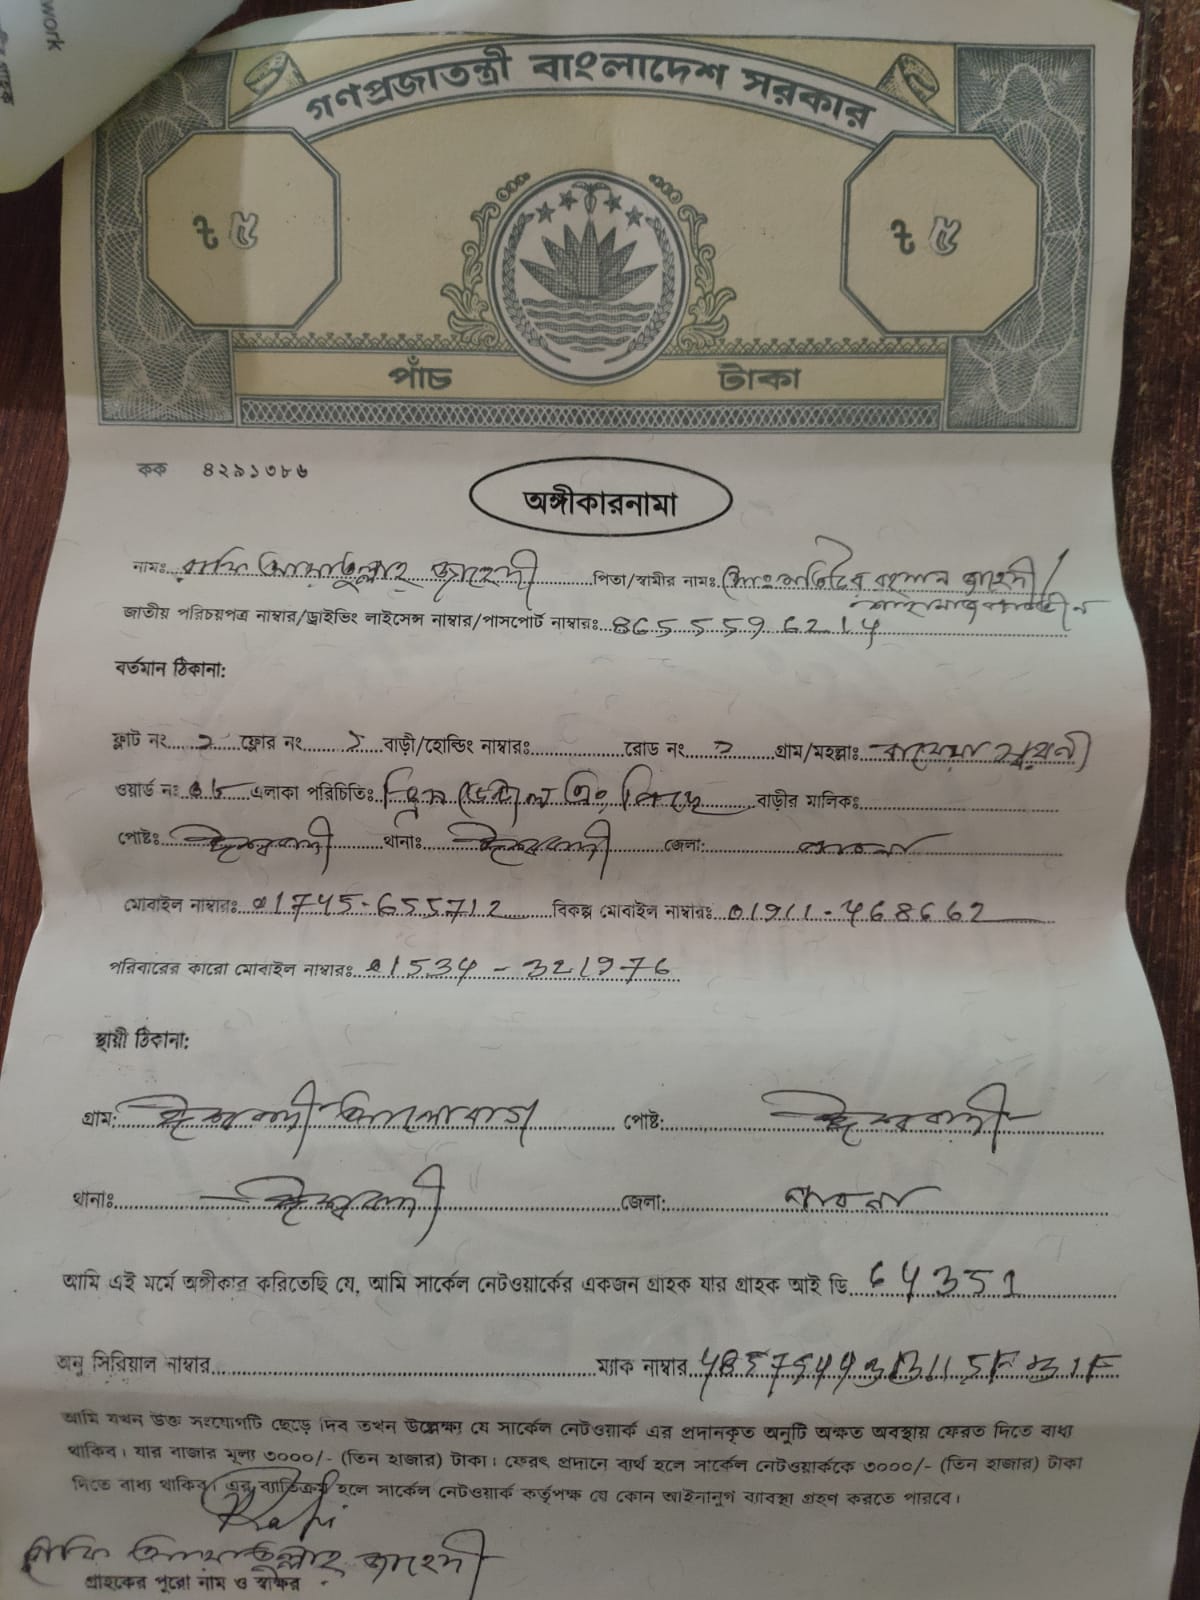 work
গণপ্রজাতন্ত্রী বাংলাদেশ সরকার
৳ ৫ ৳ ৫
পাঁচ টাকা
কক ৪২৯১৩৮৬
অঙ্গীকারনামা
নামঃ রাফি আয়াতুল্লাহ জাহেদী পিতা/স্বামীর নামঃ মোঃ রহমান জাহেদী/
জাতীয় পরিচয়পত্র নাম্বার/ড্রাইভিং লাইসেন্স নাম্বার/পাসপোর্ট নাম্বারঃ 8655596214
বর্তমান ঠিকানা:
ফ্লাট নং ফ্লোর নং বাড়ী/হোল্ডিং নাম্বারঃ রোড নং গ্রাম/মহল্লাঃ
ওয়ার্ড নঃ এলাকা পরিচিতিঃ বাড়ীর মালিকঃ
পোষ্টঃ ঈশ্বরদী থানাঃ ঈশ্বরদী জেলা: পাবনা
মোবাইল নাম্বারঃ 01745-655712 বিকল্প মোবাইল নাম্বারঃ 01911-468662
পরিবারের কারো মোবাইল নাম্বারঃ 01534-321976
স্থায়ী ঠিকানা:
গ্রাম: ঈশ্বরদী পোষ্ট: ঈশ্বরদী
থানাঃ ঈশ্বরদী জেলা: পাবনা
আমি এই মর্মে অঙ্গীকার করিতেছি যে, আমি সার্কেল নেটওয়ার্কের একজন গ্রাহক যার গ্রাহক আই ডি 64351
অনু সিরিয়াল নাম্বার ম্যাক নাম্বার
আমি যখন উক্ত সংযোগটি ছেড়ে দিব তখন উল্লেক্ষ্য যে সার্কেল নেটওয়ার্ক এর প্রদানকৃত অনুটি অক্ষত অবস্থায় ফেরত দিতে বাধ্য
থাকিব। যার বাজার মূল্য ৩০০০/- (তিন হাজার) টাকা। ফেরৎ প্রদানে ব্যর্থ হলে সার্কেল নেটওয়ার্ককে ৩০০০/- (তিন হাজার) টাকা
দিতে বাধ্য থাকিব। এর ব্যতিক্রম হলে সার্কেল নেটওয়ার্ক কর্তৃপক্ষ যে কোন আইনানুগ ব্যাবস্থা গ্রহণ করতে পারবে।
Rafi
রাফি আয়াতুল্লাহ জাহেদী
গ্রাহকের পুরো নাম ও স্বাক্ষর